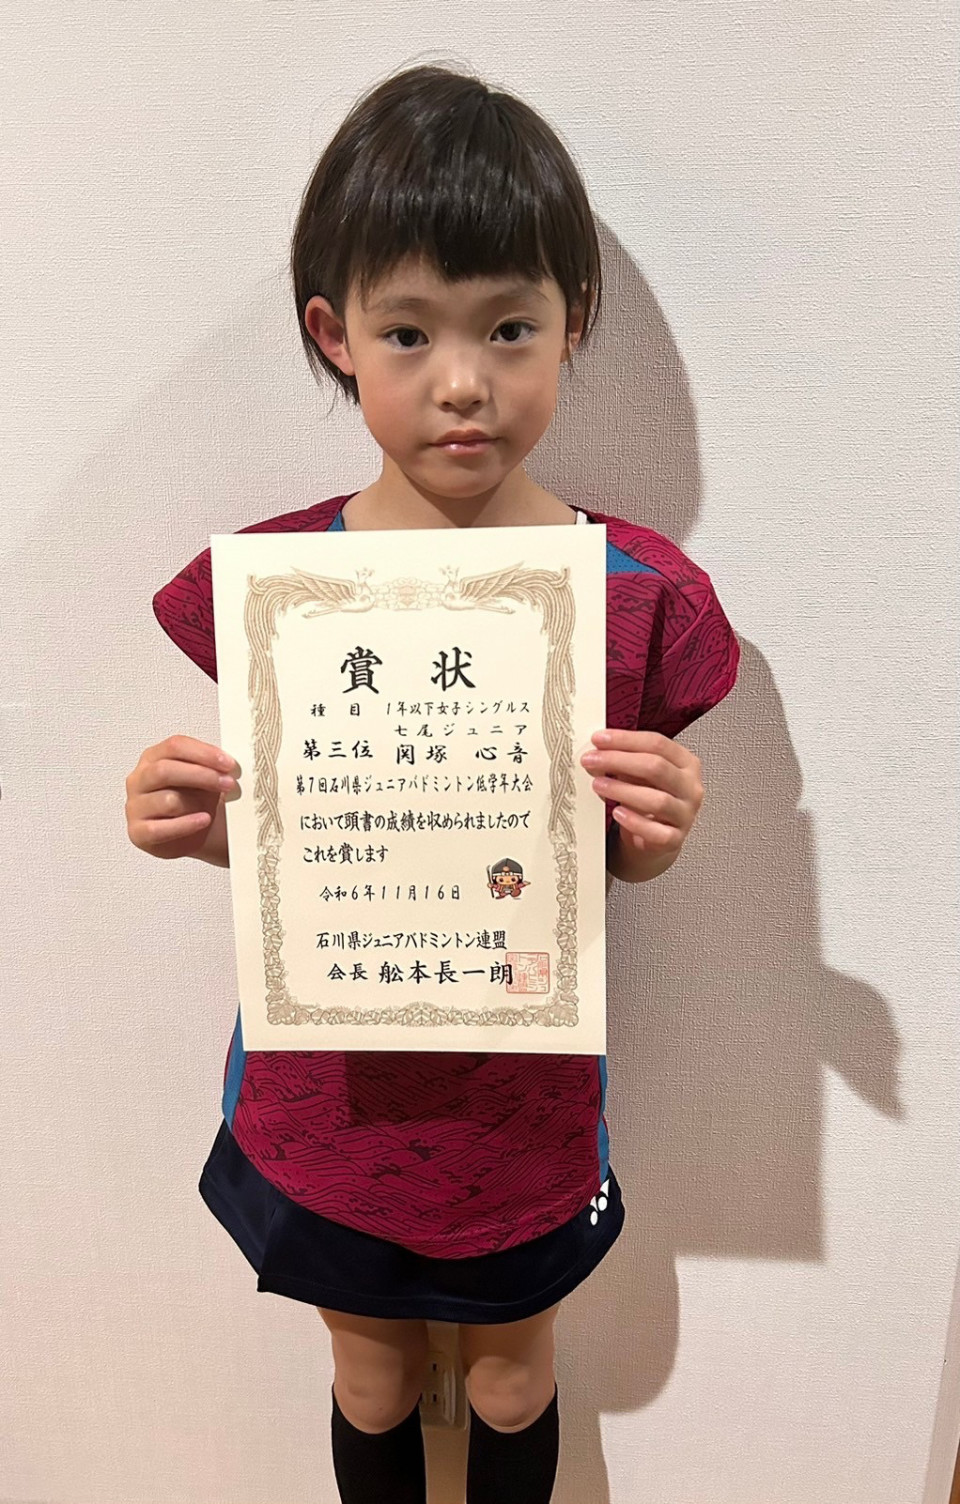 賞 状
種 目 1年以下女子シングルス
七尾ジュニア
第三位 関塚 心音
第7回石川県ジュニアバドミントン低学年大会
において頭書の成績を収められましたので
これを賞します
令和6年11月16日
石川県ジュニアバドミントン連盟
会長 舩本長一朗